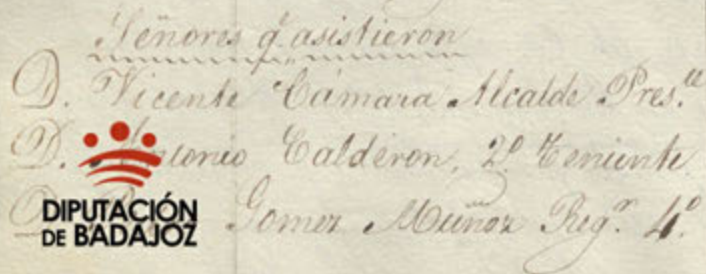 Señores q.e asistieron
D. Vicente Cámara Alcalde Pres.te
D. Antonio Calderon, 2.º Teniente
D. Gomez Muñoz Reg.r 4.º
DIPUTACIÓN
DE BADAJOZ